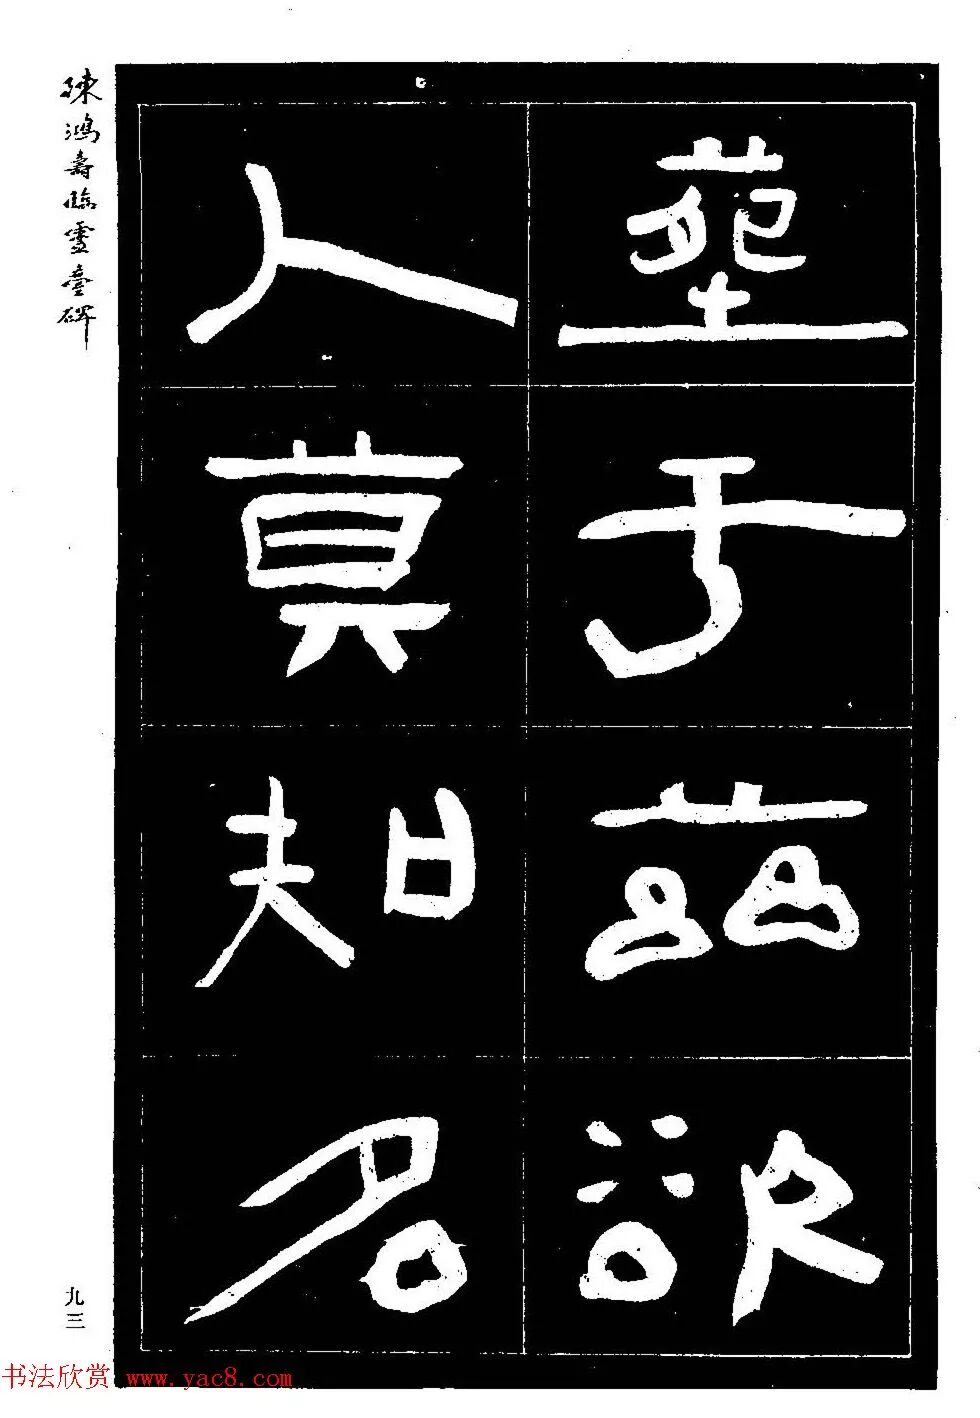 塟于兹欲
人莫知名
陳鴻壽臨靈臺碑
九三
书法欣赏 www.yac8.com